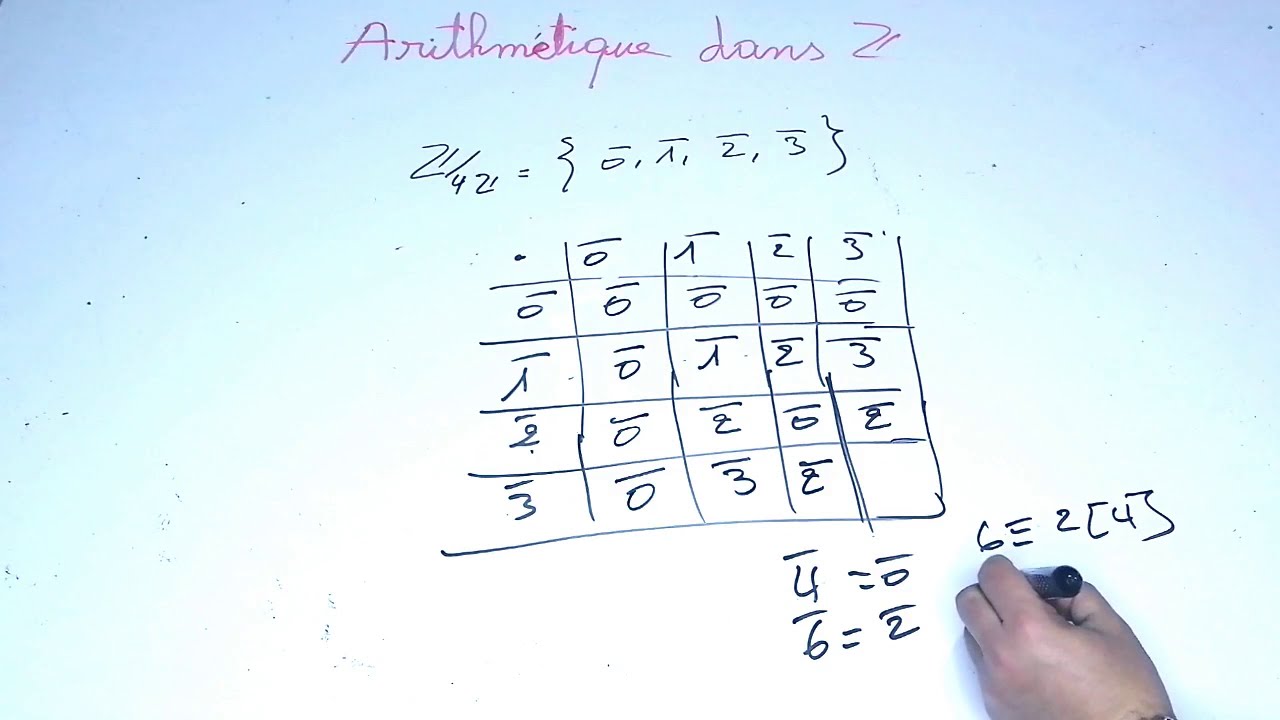 Arithmétique dans ℤ
ℤ/4ℤ = { 0̅, 1̅, 2̅, 3̅ }
· 0̅ 1̅ 2̅ 3̅
0̅ 0̅ 0̅ 0̅ 0̅
1̅ 0̅ 1̅ 2̅ 3̅
2̅ 0̅ 2̅ 0̅ 2̅
3̅ 0̅ 3̅ 2̅
6 ≡ 2[4]
4̅ = 0̅
6̅ = 2̅